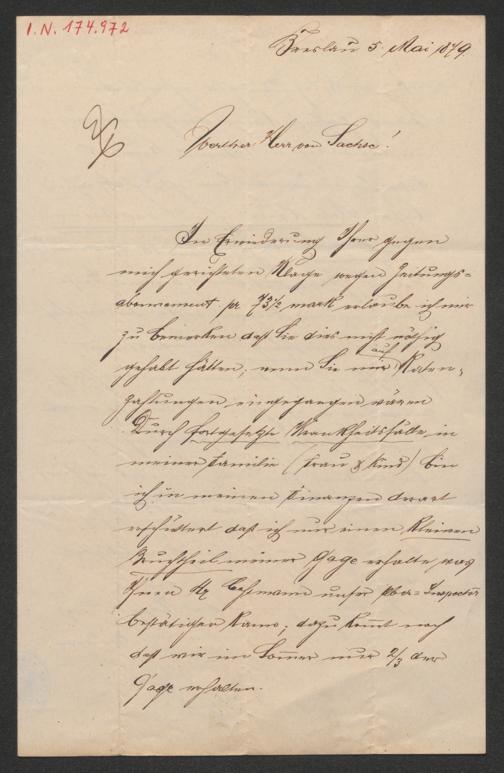 I.N. 174.972
Breslau 5. Mai 1879
Werther Herr von Sachse!
In Erwiderung Ihrer gegen
mich gerichteten Klage wegen Zeitungs=
abonnement pr 73½ mark erlaube ich mir
zu bemerken daß Sie dies nicht nöthig
gehabt hätten; wenn Sie auf Raten=
zahlungen eingegangen wären
Durch fortgesetzte Krankheitsfälle in
meiner Familie (Frau & Kind) bin
ich in meinen Finanzen derart
erschüttert daß ich nur einen kleinen
Bruchtheil meiner Gage erhalte, was
Ihnen unser Ober=Inspector
bestätigen kann; dazu kommt noch
daß wir im Sommer nur 2/3 der
Gage erhalten.